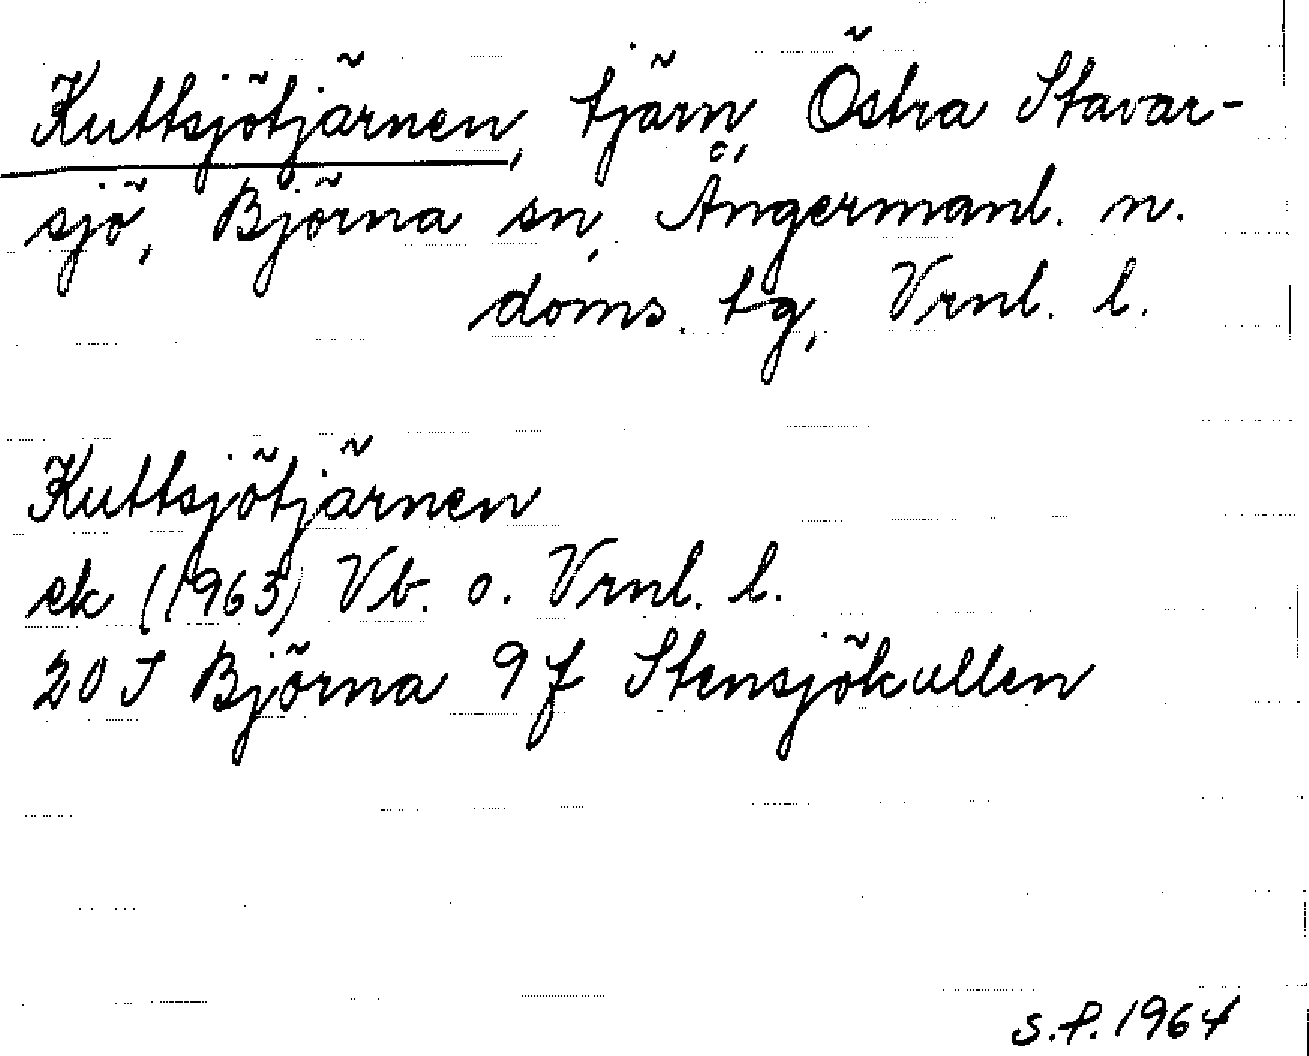 Kuttsjötjärnen, tjärn, Östra Stavar-
sjö, Björna sn, Ångermanl. n.
doms. tg, Vrnl. l.
Kuttsjötjärnen
ek (1963) Vb. o. Vrnl. l.
20 I Björna 9 f Stensjökullen
s.f. 1964